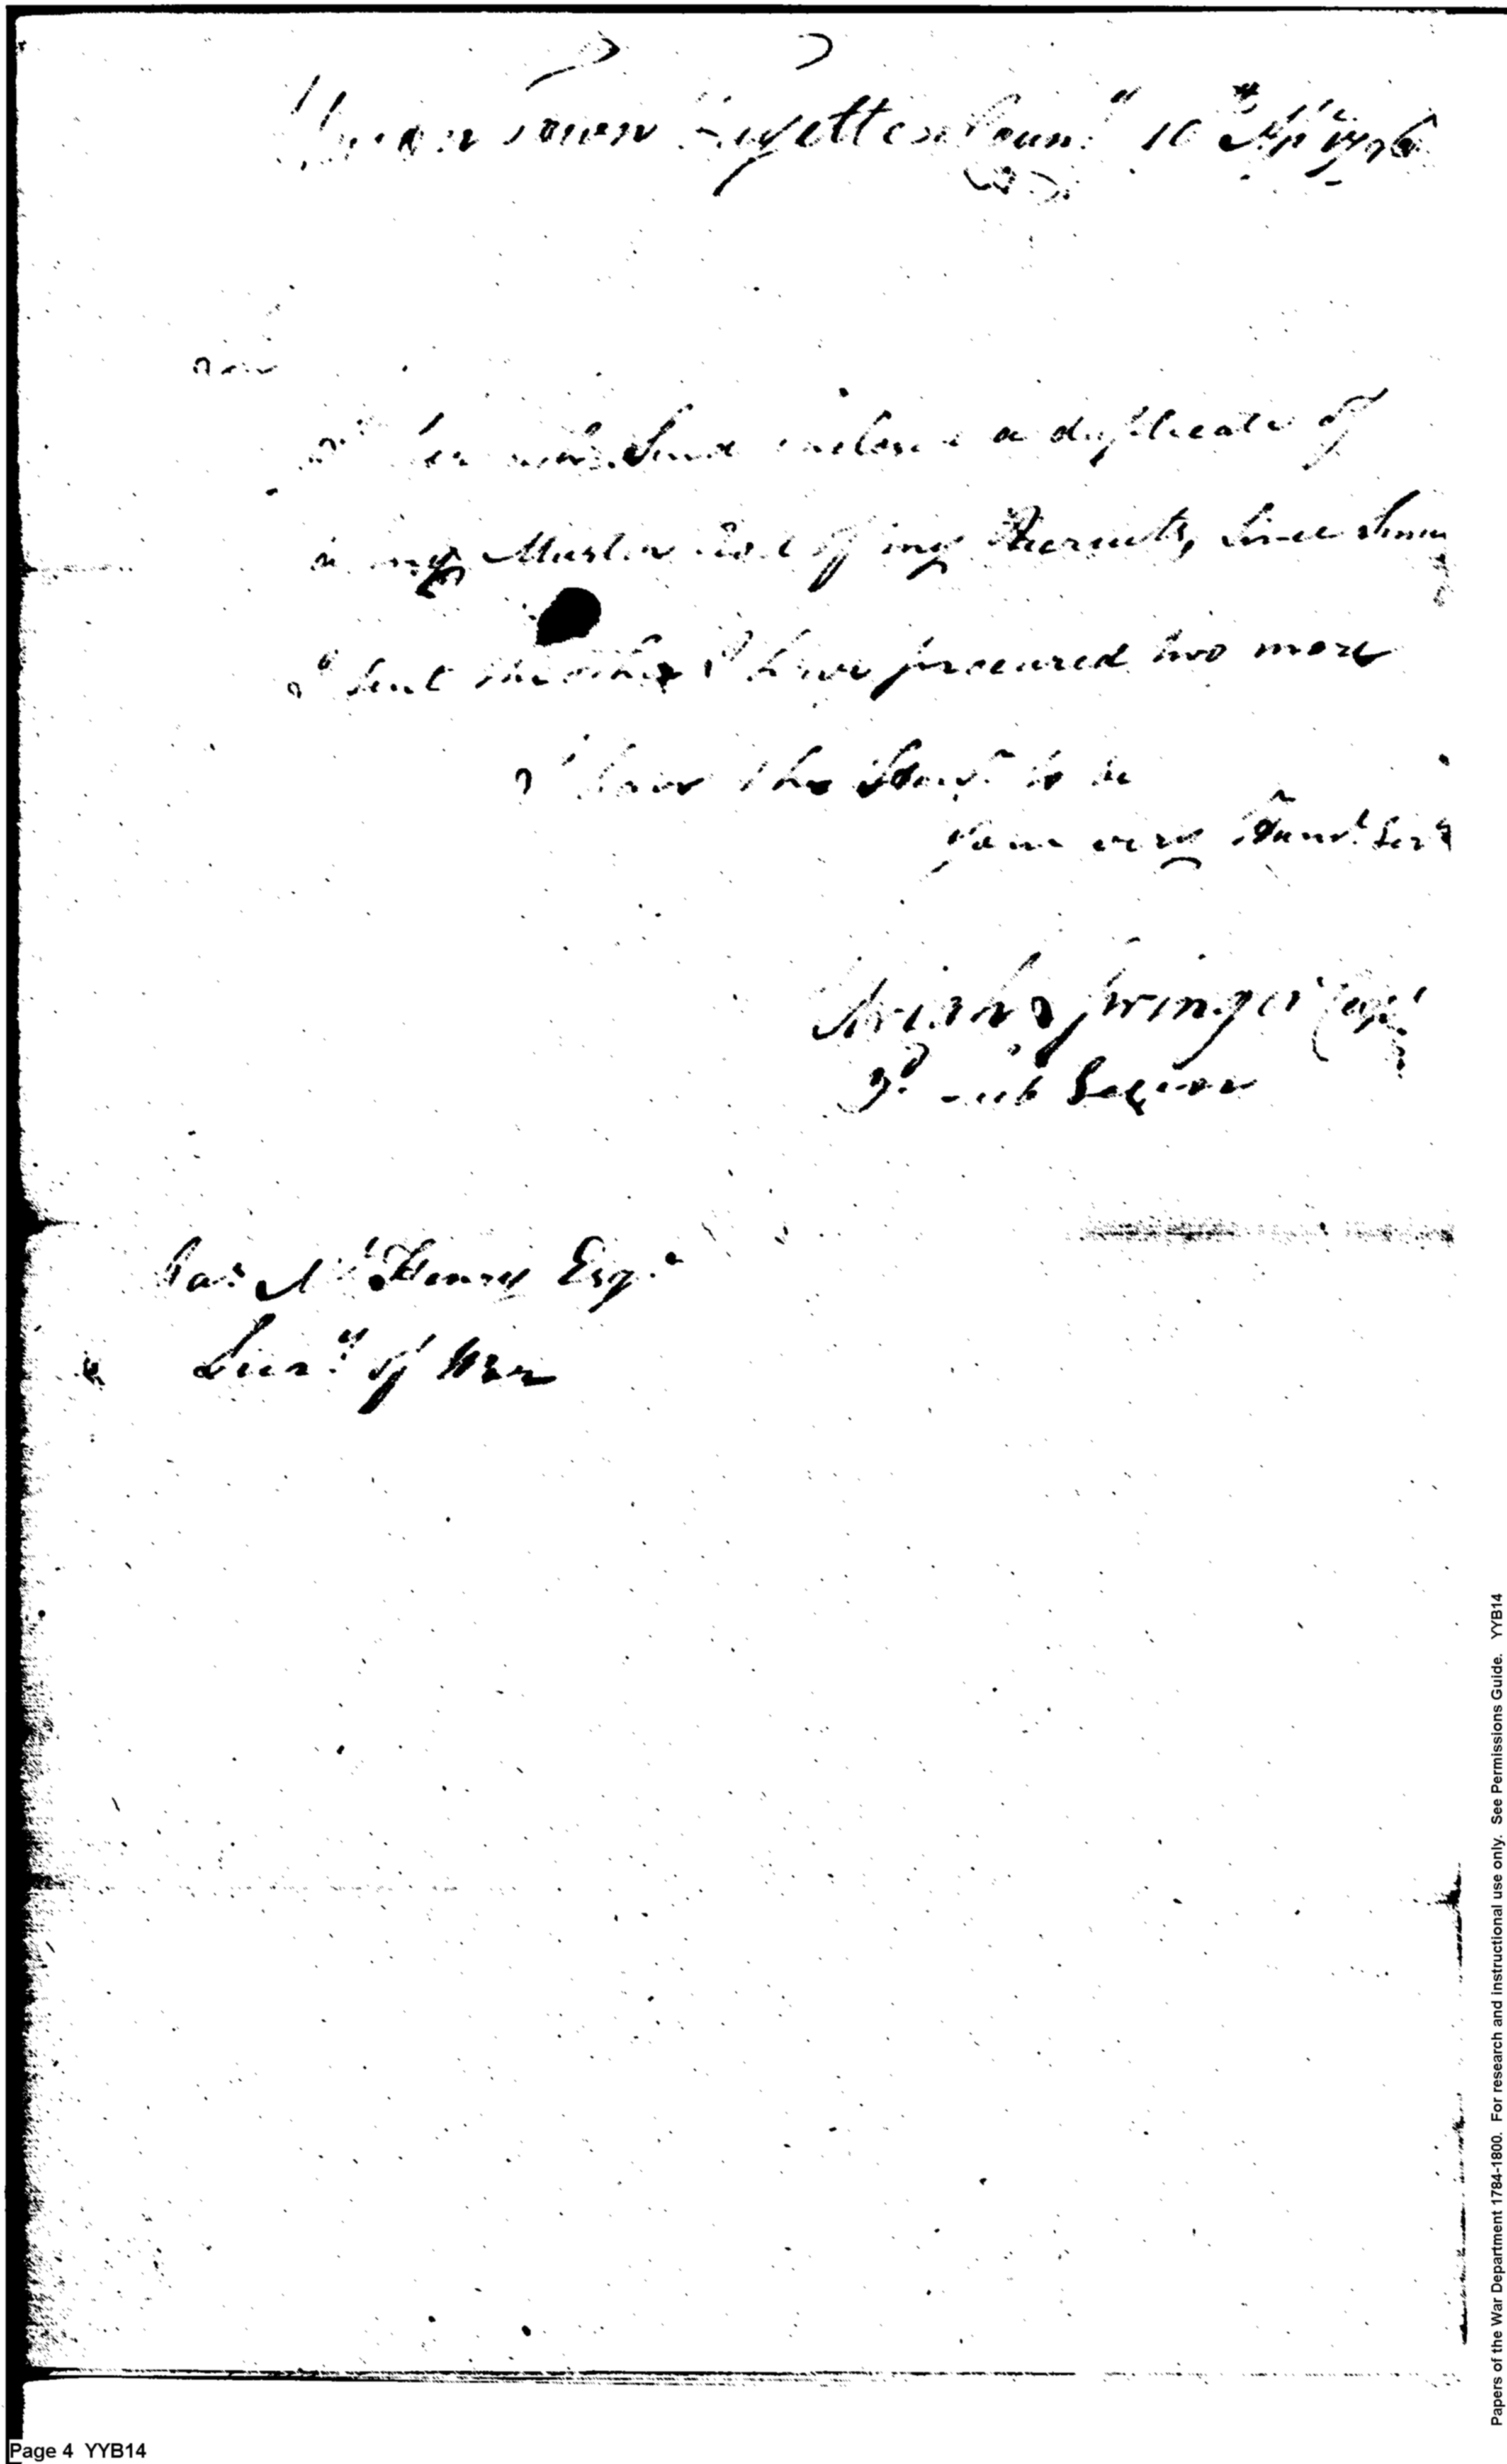 Union Town Fayette Coun.y 10th Ap.l 1796
Sir
I herewith Send inclosed a duplicate of
my Muster Roll of my Recruits, Since
I sent the other I have procured two more
I have the Hon.r to be
your very Hum.l Ser.t
Uriah Springer Cap.t
3.d Sub Legion
Ja.s McHenry Esq.r
Secr.y of War
Papers of the War Department 1784-1800. For research and instructional use only. See Permissions Guide. YYB14
Page 4 YYB14